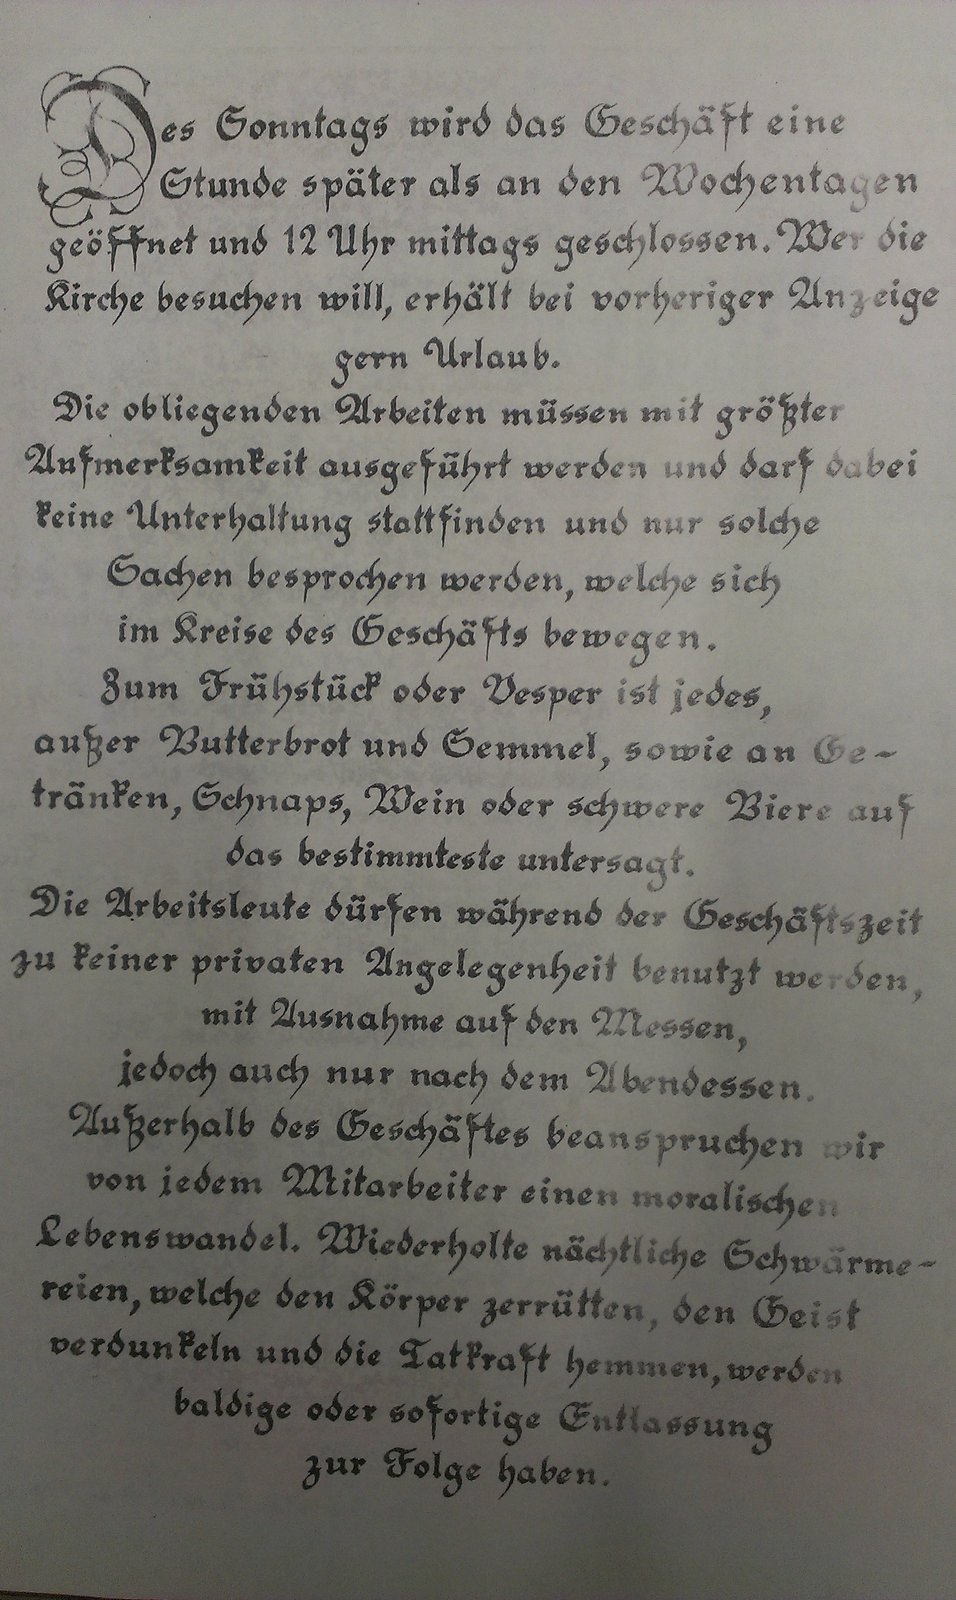 Des Sonntags wird das Geschäft eine
Stunde später als an den Wochentagen
geöffnet und 12 Uhr mittags geschlossen. Wer die
Kirche besuchen will, erhält bei vorheriger Anzeige
gern Urlaub.
Die obliegenden Arbeiten müssen mit größter
Aufmerksamkeit ausgeführt werden und darf dabei
keine Unterhaltung stattfinden und nur solche
Sachen besprochen werden, welche sich
im Kreise des Geschäfts bewegen.
Zum Frühstück oder Vesper ist jedes,
außer Butterbrot und Semmel, sowie an Ge-
tränken, Schnaps, Wein oder schwere Biere auf
das bestimmteste untersagt.
Die Arbeitsleute dürfen während der Geschäftszeit
zu keiner privaten Angelegenheit benutzt werden,
mit Ausnahme auf den Messen,
jedoch auch nur nach dem Abendessen.
Außerhalb des Geschäftes beanspruchen wir
von jedem Mitarbeiter einen moralischen
Lebenswandel. Wiederholte nächtliche Schwärme-
reien, welche den Körper zerrütten, den Geist
verdunkeln und die Tatkraft hemmen, werden
baldige oder sofortige Entlassung
zur Folge haben.